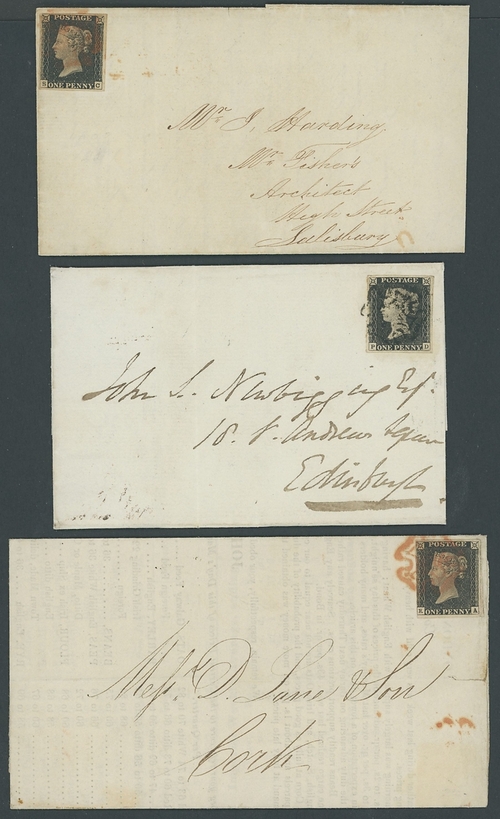 POSTAGE
ONE PENNY
Mr. J. Harding
Mr. Fisher's
Architect
High Street
Salisbury
POSTAGE
P ONE PENNY D
John S. Newbigging Esqr.
18. St. Andrew Square
Edinburgh
POSTAGE
ONE PENNY A
Messrs. D. Lane & Son
Cork